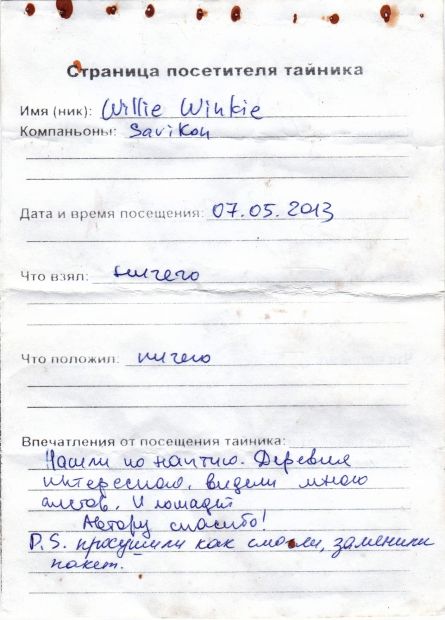 Страница посетителя тайника
Имя (ник): Willie Winkie
Компаньоны: Savikon
Дата и время посещения: 07.05.2013
Что взял: ничего
Что положил: ничего
Впечатления от посещения тайника:
Нашли по наитию. Деревня
интересная, видели много
аистов. И лошадей
Автору спасибо!
P.S. просушили как смогли, заменили
пакет.